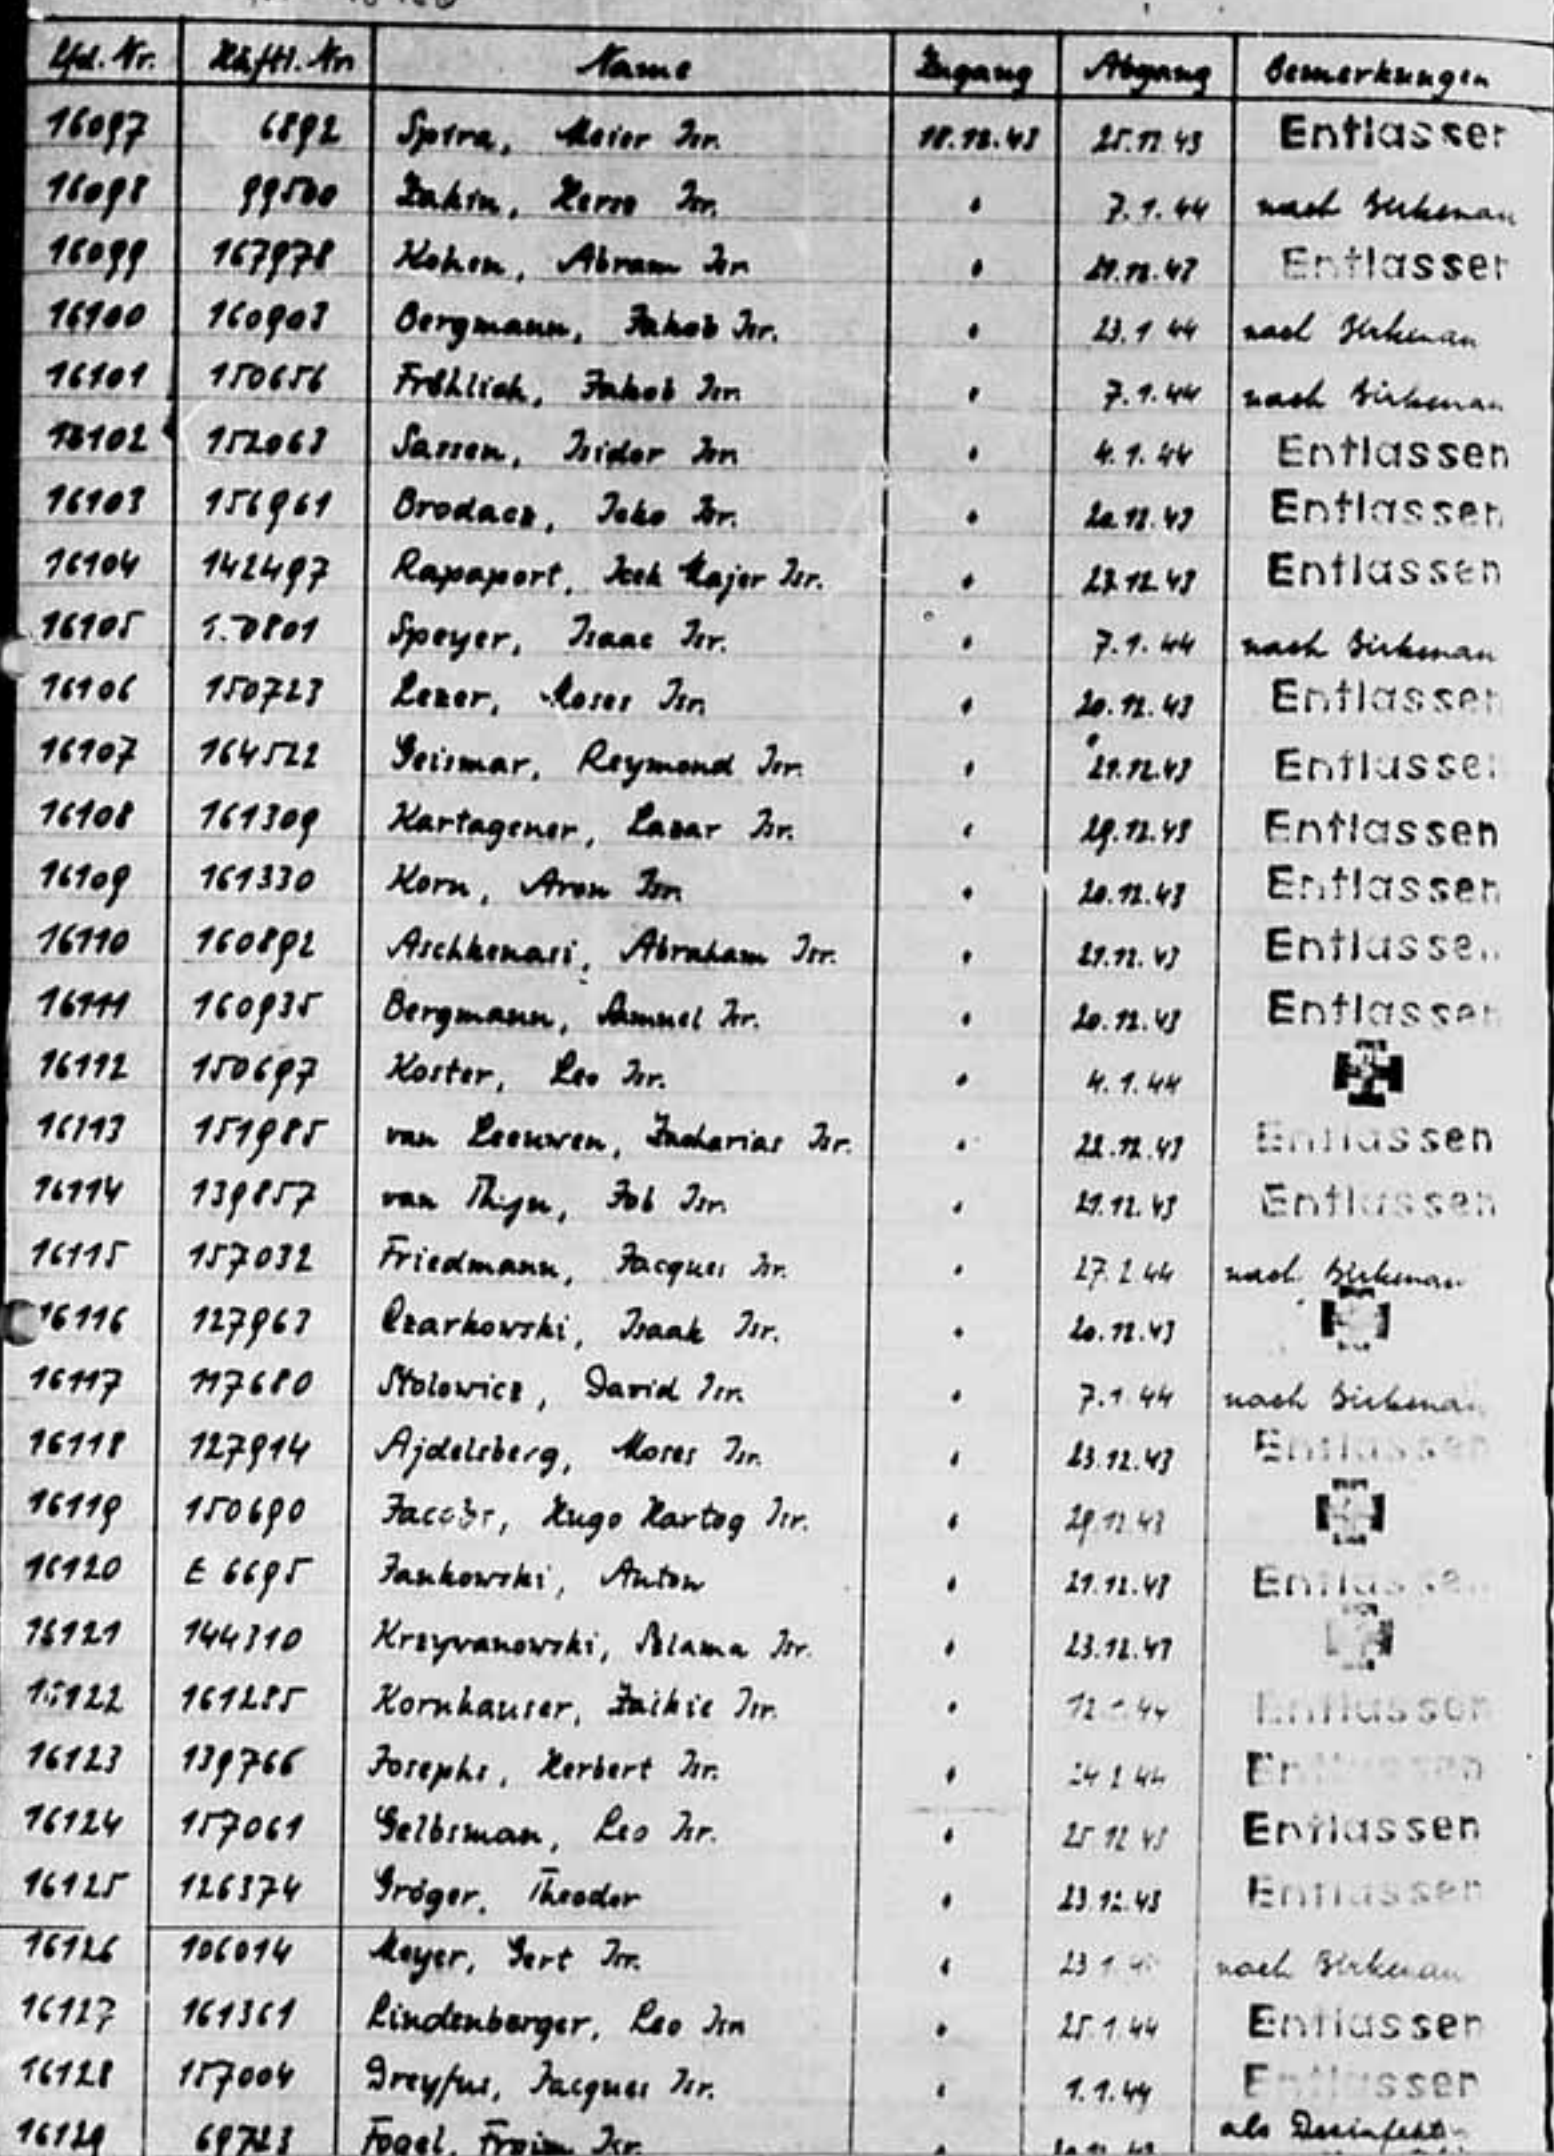 Lfd. Nr. Häftl. Nr. Name Zugang Abgang Bemerkungen
16097 6892 Spira, Meier Isr. 18.12.43 25.12.43 Entlassen
16098 99500 Zakin, Herso Isr. " 7.1.44 nach Birkenau
16099 167978 Kohen, Abram Isr. " 21.12.43 Entlassen
16100 160903 Bergmann, Jakob Isr. " 23.1.44 nach Birkenau
16101 150656 Fröhlich, Jakob Isr. " 7.1.44 nach Birkenau
16102 152063 Sassen, Isidor Isr. " 4.1.44 Entlassen
16103 156961 Brodacz, Icko Isr. " 20.12.43 Entlassen
16104 142497 Rapaport, Icek Majer Isr. " 23.12.43 Entlassen
16105 Speyer, Isaac Isr. " 7.1.44 nach Birkenau
16106 150723 Lezer, Moses Isr. " 20.12.43 Entlassen
16107 164522 Geismar, Reymond Isr. " 21.12.43 Entlassen
16108 161309 Kartagener, Lazar Isr. " 29.12.43 Entlassen
16109 161330 Korn, Aron Isr. " 20.12.43 Entlassen
16110 160892 Aschkenasi, Abraham Isr. " 21.12.43 Entlassen
16111 160935 Bergmann, Samuel Isr. " 20.12.43 Entlassen
16112 150697 Koster, Leo Isr. " 4.1.44
16113 151985 van Leeuwen, Zacharias Isr. " 22.12.43 Entlassen
16114 139857 van Thijn, Job Isr. " 21.12.43 Entlassen
16115 157032 Friedmann, Jacques Isr. " 27.2.44 nach Birkenau
16116 127963 Czarkowski, Isaak Isr. " 20.12.43
16117 117680 Stolowicz, David Isr. " 7.1.44 nach Birkenau
16118 127914 Ajdelsberg, Moses Isr. " 23.12.43 Entlassen
16119 150690 Jacobs, Hugo Hartog Isr. " 29.12.43
16120 E 6695 Jankowski, Anton " 21.12.43 Entlassen
16121 144310 Krzyvanowski, Szlama Isr. " 23.12.43
16122 161285 Kornhauser, Isr. " Entlassen
16123 139766 Josephs, Herbert Isr. " Entlassen
16124 157061 Gelbsman, Leo Isr. " 25.12.43 Entlassen
16125 126374 Gröger, Theodor " 23.12.43 Entlassen
16126 106014 Meyer, Gert Isr. " nach Birkenau
16127 161361 Lindenberger, Leo Isr. " 25.1.44 Entlassen
16128 157004 Dreyfus, Jacques Isr. " 1.1.44 Entlassen
16129 69723 Fogel, Froim Isr. " als